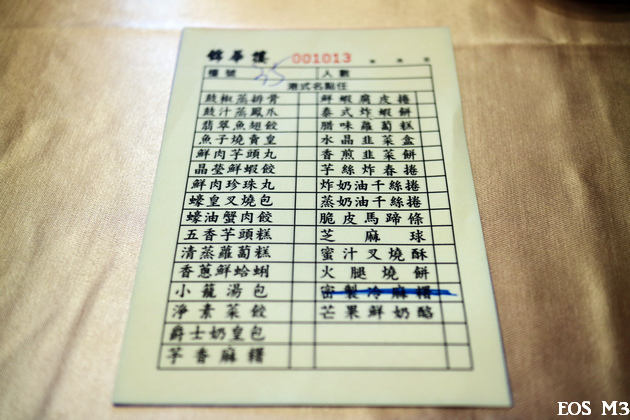 錦華樓 001013
檯號 35 人數
港式名點任
豉椒蒸排骨 鮮蝦腐皮捲
豉汁蒸鳳爪 泰式炸蝦餅
翡翠魚翅餃 腊味蘿蔔糕
魚子燒賣皇 水晶韭菜盒
鮮肉芋頭丸 香煎韭菜餅
晶瑩鮮蝦餃 芋絲炸春捲
鮮肉珍珠丸 炸奶油千絲捲
蠔皇叉燒包 蒸奶油千絲捲
蠔油蟹肉餃 脆皮馬蹄條
五香芋頭糕 芝麻球
清蒸蘿蔔糕 蜜汁叉燒酥
香蔥鮮蛤蜊 火腿燒餅
小籠湯包 密製冷麻糬
淨素菜餃 芒果鮮奶酪
爵士奶皇包
芋香麻糬
EOS M3